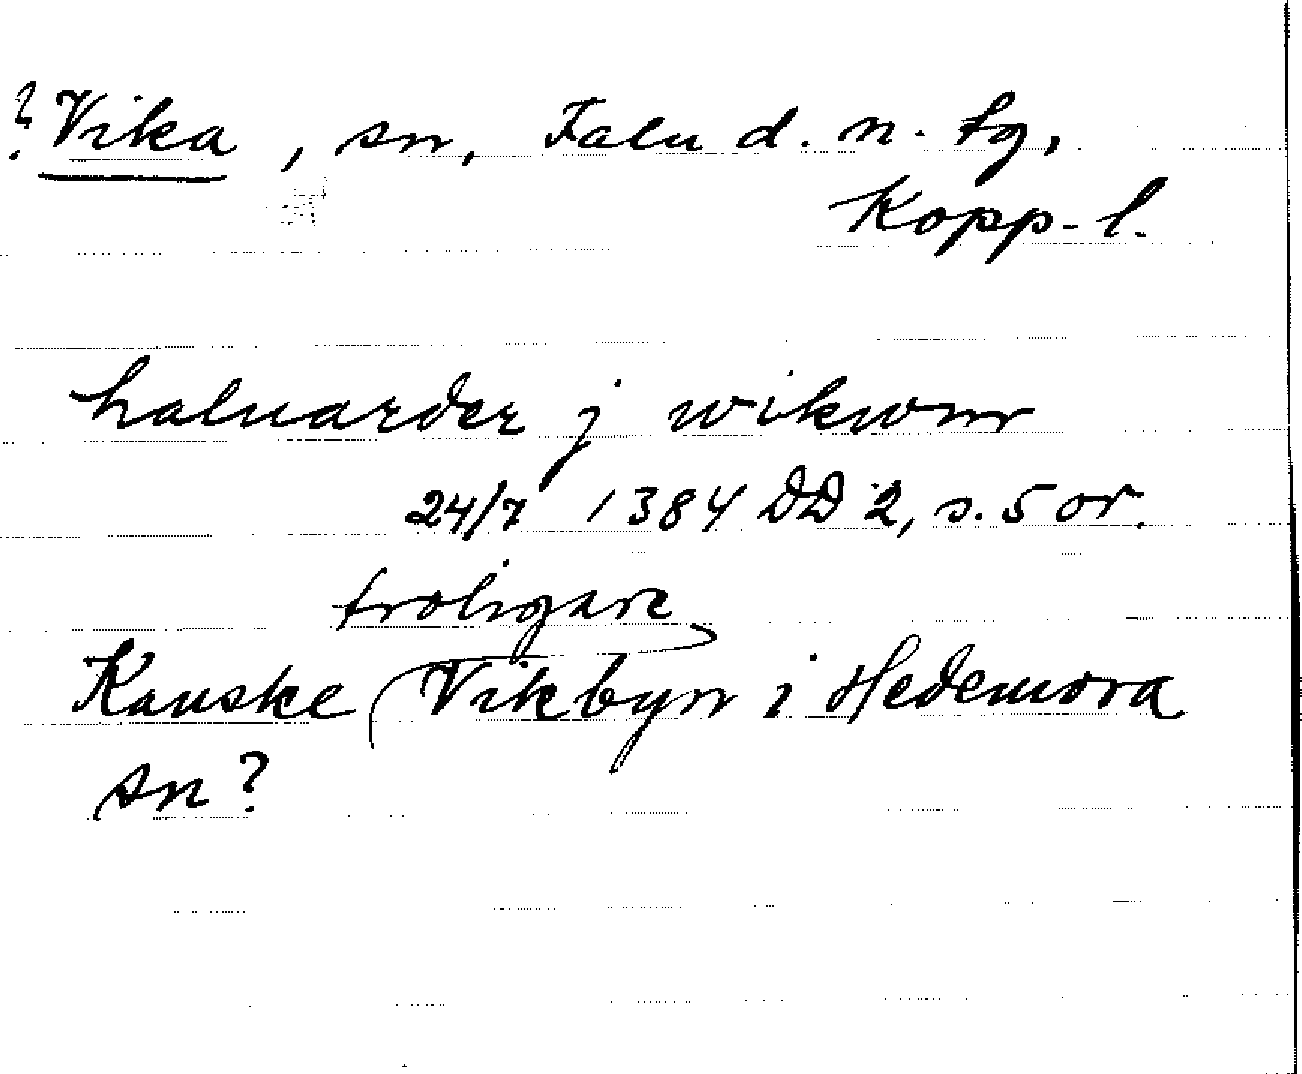 ? Vika, sn, Falu d. n. tg,
Kopp-l.
haluarder j wikwm
24/7 1384 DD 2, s. 5 or.
troligare
Kanske Vikbyn i Hedemora
sn?